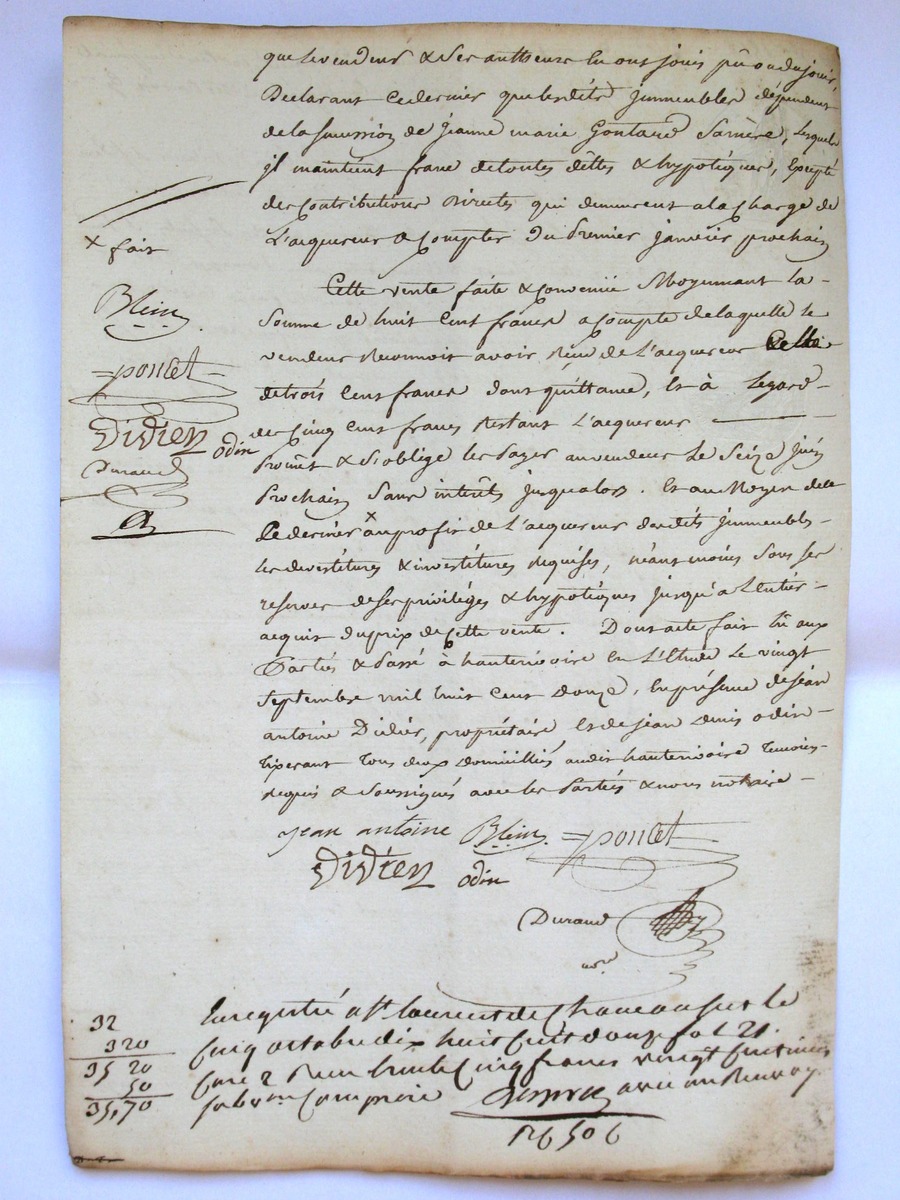 que le vendeur & ses autheurs en ont joui pû ou du jouir,
Déclarant ce dernier que lesdits jmmeubles dépendent
de la succession de jeanne marie Gontaud Sa mère, lesquels
jl maintient franc de toutes dêttes & hypotèques, Excepté
des Contributions Directes qui demeurent a la Charge de
L'acquereur a Compter Du Premier janvier prochain
Cette vente faite & Convenüe Moyennant la
Somme de huit Cent francs a Compte de laquelle le
vendeur Reconnoit avoir Réçu de L'acquereur Celle
de trois Cent francs dont quittance, Et à Legard
des Cinq Cent francs Restant L'acquereur
Promêt & S'oblige les Payer au vendeur Le Seize Juin
Prochain Sans interêts jusqu'alors. Et au Moyen de ce
Ce dernier x au profit de L'acquereur desdits jmmeubles
les devestitures & investitures requises, néansmoins Sous les
reserves de ses privilèges & hypotèques jusqu'a L'entier
acquit du prix de Cette vente. Dont acte fait lû aux
Parties & Passé à hauterivoire En L'Etude Le vingt
Septembre mil huit Cent Douze, En présence de jean
antoine Didier, propriétaire Et de jean denis odin
tixerant tous deux domiciliés audit hauterivoire temoins
requis & Soussignés avec les Parties & nous notaire
x fait
Blein
poncet
DiDiER
odin
Durand
jean antoine Blein poncet
DiDiER odin
Durand
nre
Enregistré a St. laurent de Chamousset le
Cinq octobre dix huit Cent douze fol 21.
Case 2 Reçu trente Cinq francs vingt Centimes
subvon Comprise avec un Renvoy
32
3 20
35 20
50
35,70